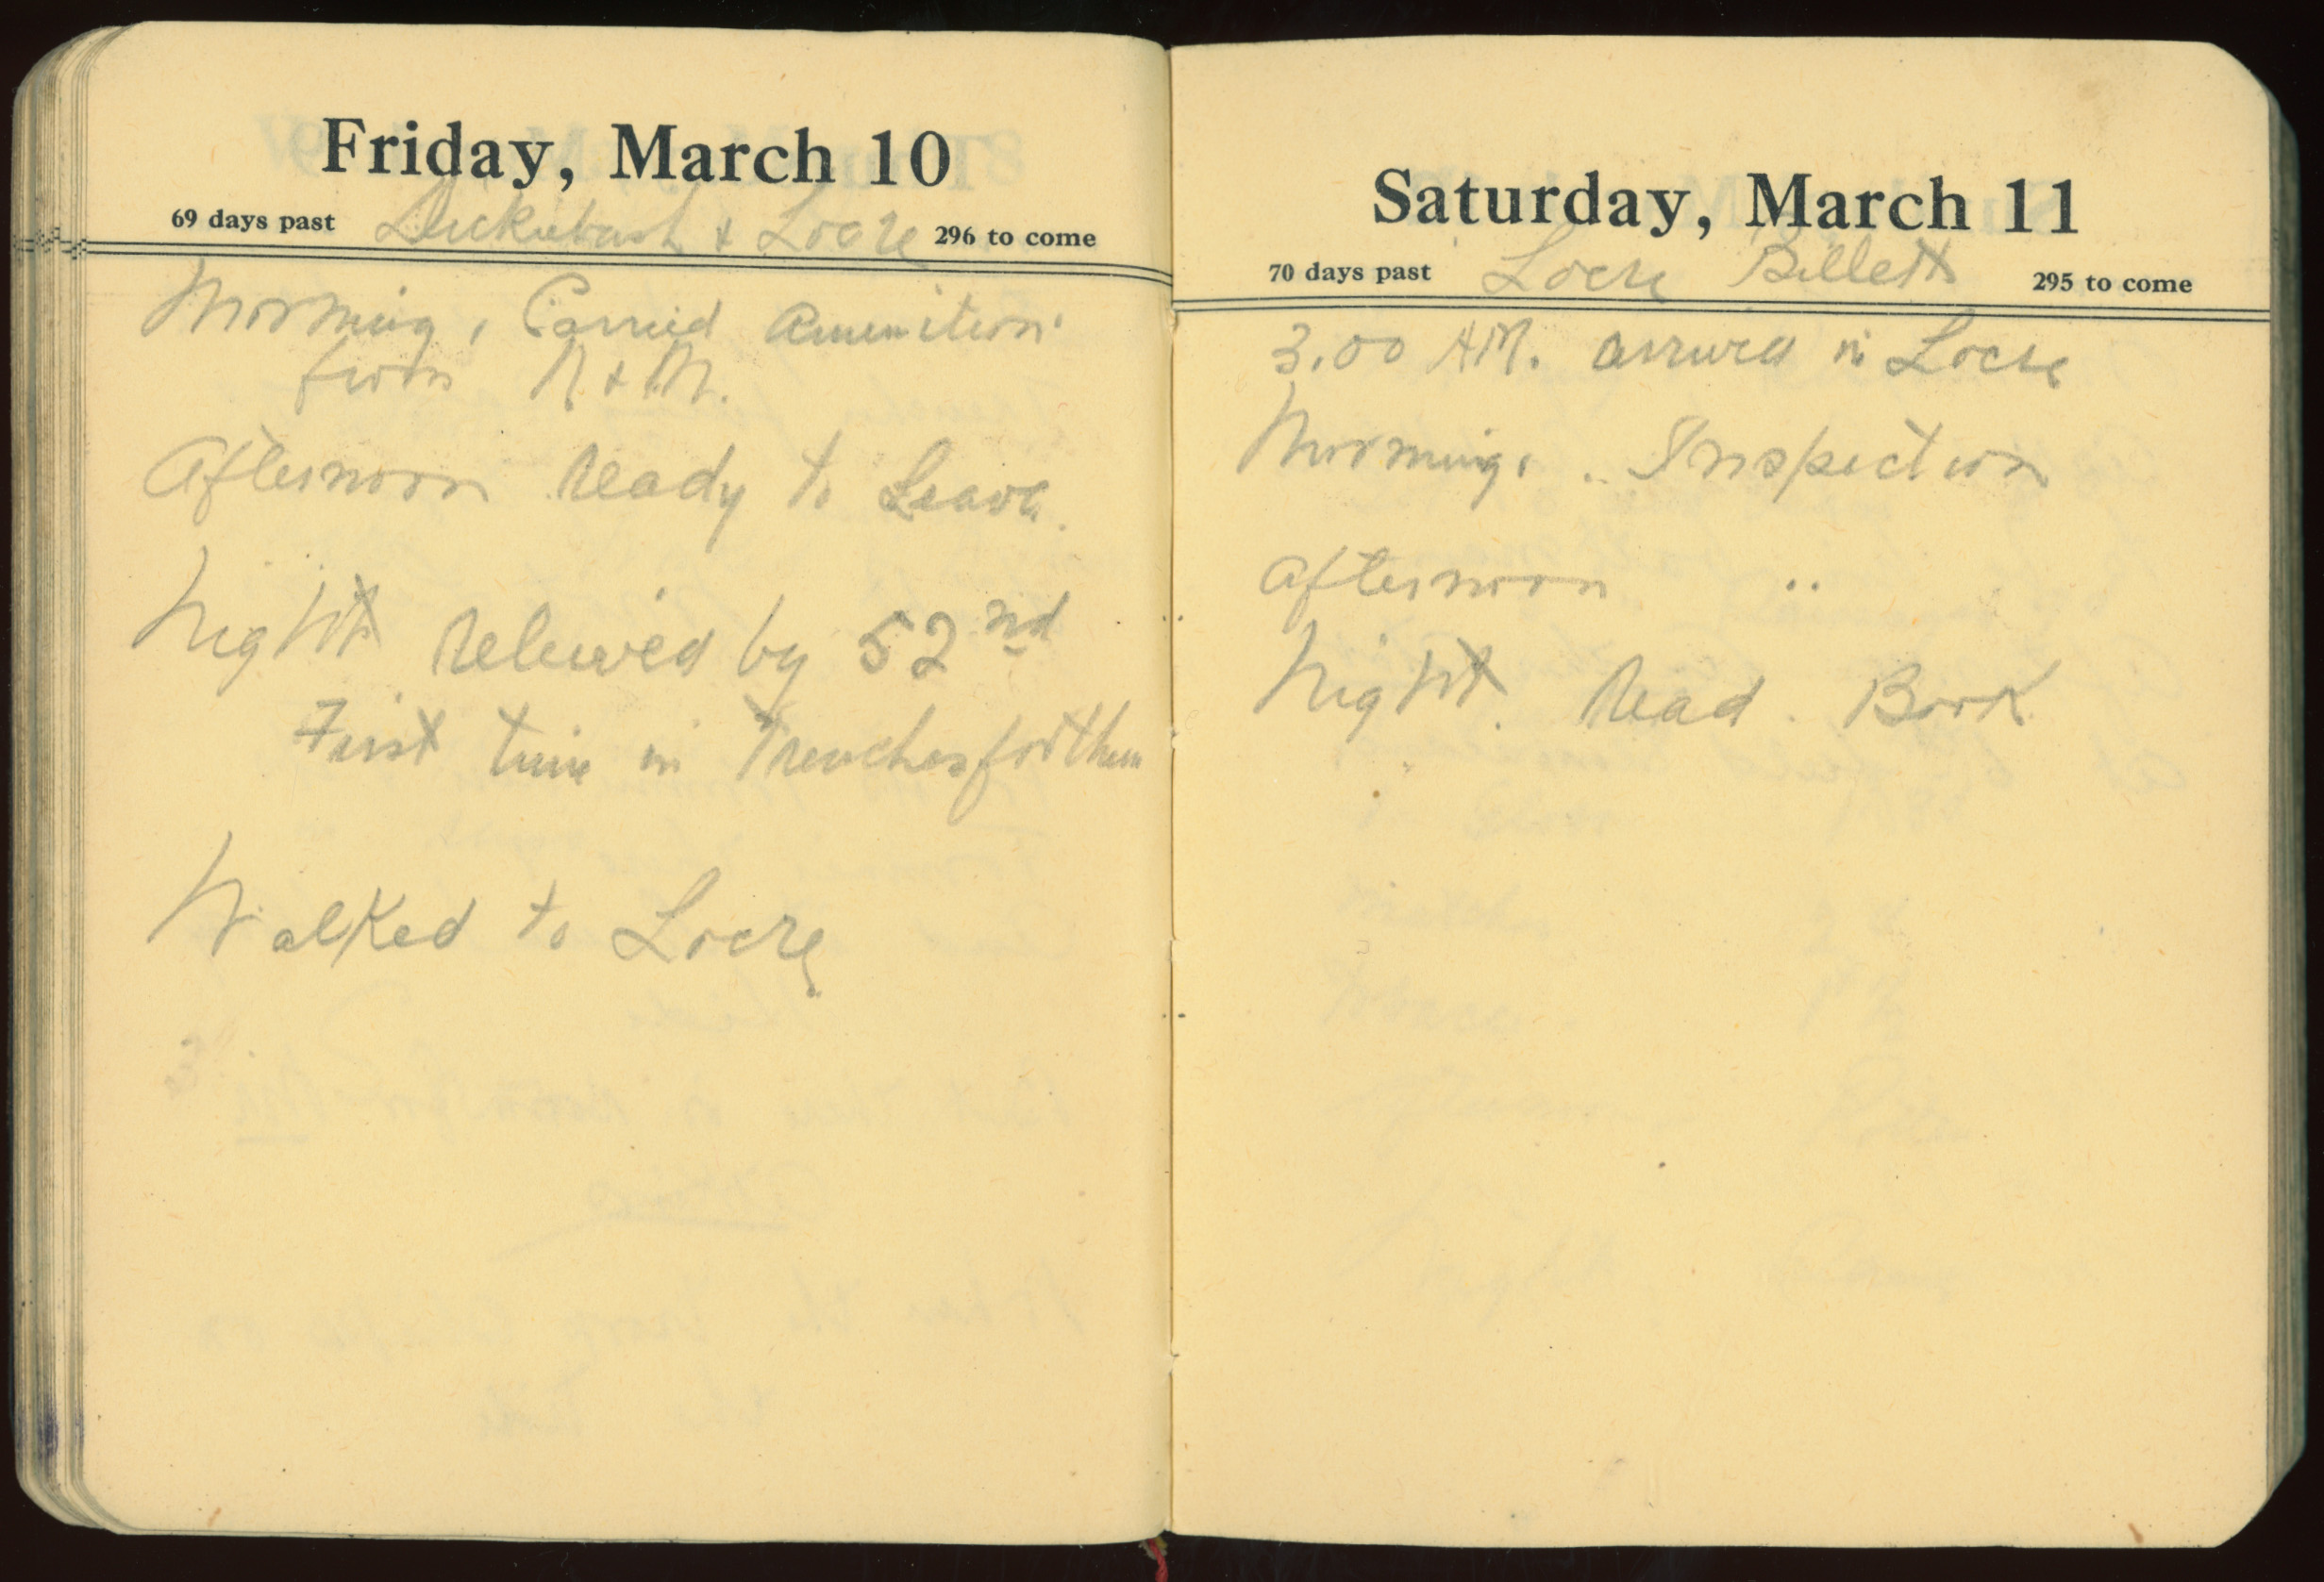 Friday, March 10
69 days past Dickiebush & Locre 296 to come
Morning, Carried Amunition
from R & M.
Afternoon Ready to Leave.
Night Relieved by 52nd
First time in Trenches for them
Walked to Locre
Saturday, March 11
70 days past Locre Billets 295 to come
3.00 AM. arrived in Locre
Morning, . Inspection
Afternoon ..
Night. Read. Book